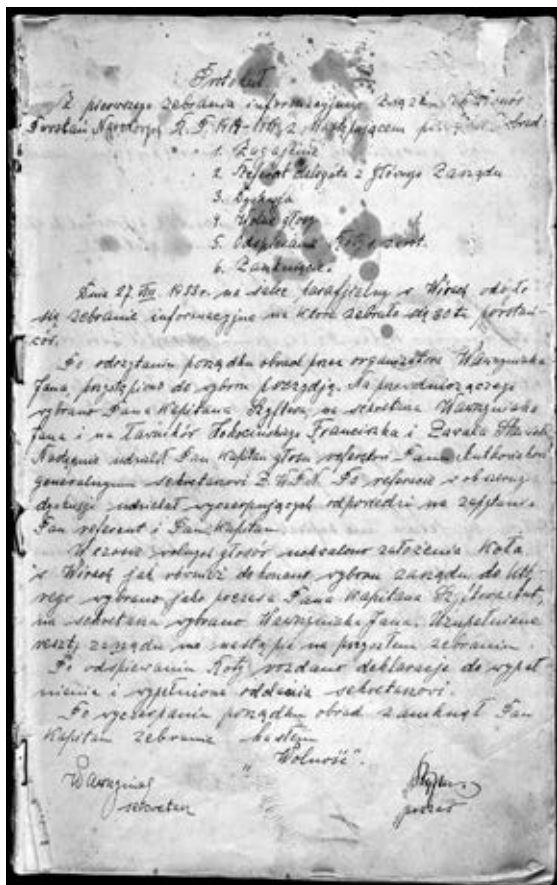 Protokół
Z pierwszego zebrania informacyjnego Związku Weteranów
Powstań Narodowych R. P. 1914-1919 z następującem obrad:
1. Zagajenie
2. Referat delegata z Głównego Zarządu
3. Dyskusja
4. Wolne głosy
5. Odśpiewanie Roty
6. Zamknięcie.
Dnia 27. VIII. 1933 r. na salce parafjalnej w Wirach odbyło
się zebranie informacyjne na które zebrało się 30tu powstań-
ców.
Po odczytaniu porządku obrad przez organizatora Wawrzyniaka
Jana, przystąpiono do wyboru Na przewodniczącego
wybrano Pana Kapitana na sekretarza Wawrzyniaka
Jana i na ławników Franciszka i
udzielił Pan Kapitan głosu referentowi Panu
generalnym sekretarzowi Po referacie w obszernej
dyskusji udzielał wyczerpujących odpowiedzi na zapytania
Pan referent i Pan Kapitan.
W czasie wolnych głosów uchwalono założenia Koła
w Wirach jak również dokonano wyboru zarządu do któ-
rego wybrano jako prezesa Pana Kapitana
na sekretarza wybrano Wawrzyniaka Jana. Uzupełnienie
reszty zarządu ma nastąpić na przyszłem zebraniu.
Po odśpiewaniu Roty rozdano deklaracje do wypeł
nienia i wypełnione oddania sekretarzowi.
Po wyczerpaniu porządku obrad zamknął Pan
Kapitan zebranie hasłem
"Wolność".
Wawrzyniak
sekretarz
prezes